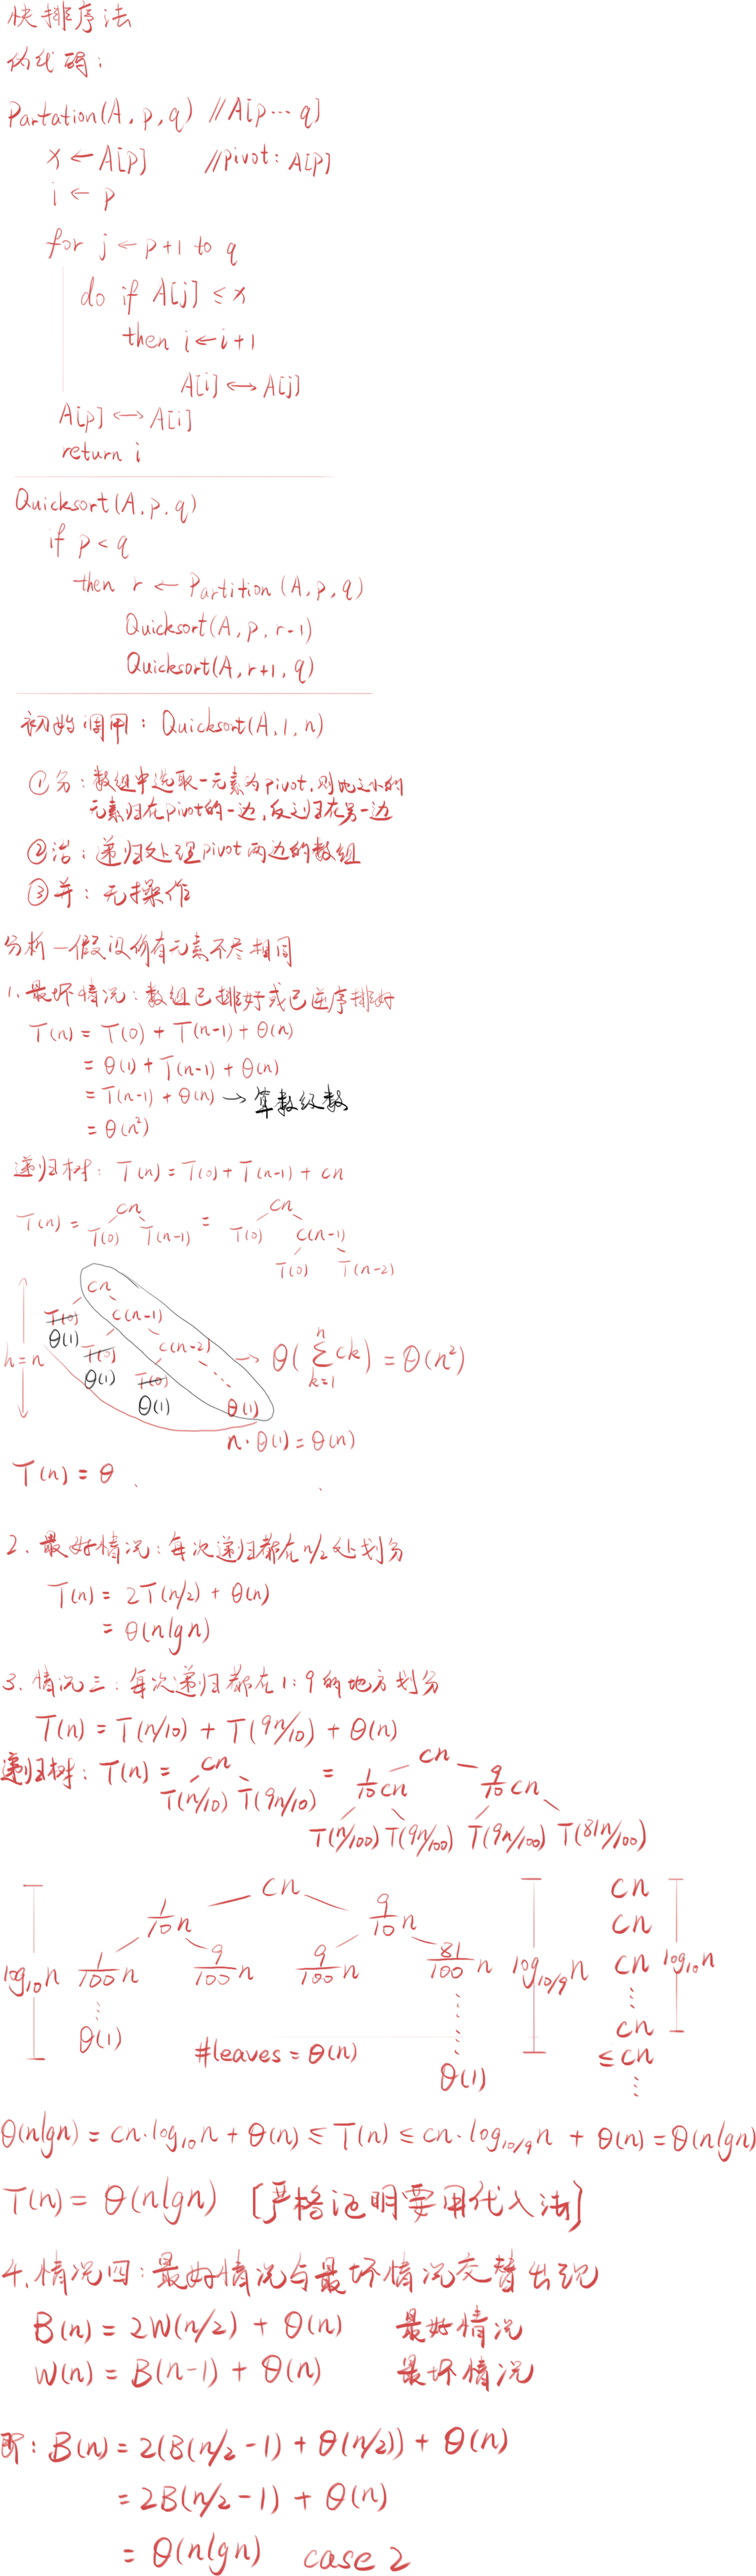 快排序法
伪代码：
Partation(A, p, q) //A[p⋯q]
x ← A[p] //pivot: A[p]
i ← p
for j ← p+1 to q
do if A[j] ≤ x
then i ← i+1
A[i] ↔ A[j]
A[p] ↔ A[i]
return i
Quicksort(A, p, q)
if p < q
then r ← Partition(A, p, q)
Quicksort(A, p, r-1)
Quicksort(A, r+1, q)
初始调用：Quicksort(A, 1, n)
①分：数组中选取一元素为pivot，则比之小的
元素归在pivot的一边，反之归在另一边
②治：递归处理pivot两边的数组
③并：无操作
分析—假设所有元素不尽相同
1. 最坏情况：数组已排好或已逆序排好
T(n) = T(0) + T(n-1) + Θ(n)
= Θ(1) + T(n-1) + Θ(n)
= T(n-1) + Θ(n) → 算数级数
= Θ(n²)
递归树：T(n) = T(0) + T(n-1) + cn
T(n) = cn T(0) T(n-1) = cn T(0) c(n-1)
T(0) T(n-2)
cn
T(0) c(n-1)
Θ(1) T(0) c(n-2)
h=n Θ(1) T(0) ⋯ → Θ(∑ⁿₖ₌₁ ck) = Θ(n²)
Θ(1) Θ(1)
n·Θ(1) = Θ(n)
T(n) = Θ
2. 最好情况：每次递归都在n/2处划分
T(n) = 2T(n/2) + Θ(n)
= Θ(nlgn)
3. 情况三：每次递归都在1:9的地方划分
T(n) = T(n/10) + T(9n/10) + Θ(n)
递归树：T(n) = cn T(n/10) T(9n/10) = cn 1/10 cn 9/10 cn
T(n/100) T(9n/100) T(9n/100) T(81n/100)
cn cn
1/10 n 9/10 n cn
log₁₀n 1/100 n 9/100 n 9/100 n 81/100 n log₁₀/₉n cn log₁₀n
⋮ ⋮ ⋮
Θ(1) #leaves = Θ(n) cn
Θ(1) ≤cn
⋮
Θ(nlgn) = cn·log₁₀n + Θ(n) ≤ T(n) ≤ cn·log₁₀/₉n + Θ(n) = Θ(nlgn)
T(n) = Θ(nlgn) [严格证明要用代入法]
4. 情况四：最好情况与最坏情况交替出现
B(n) = 2W(n/2) + Θ(n) 最好情况
W(n) = B(n-1) + Θ(n) 最坏情况
即：B(n) = 2(B(n/2-1) + Θ(n/2)) + Θ(n)
= 2B(n/2-1) + Θ(n)
= Θ(nlgn) case 2